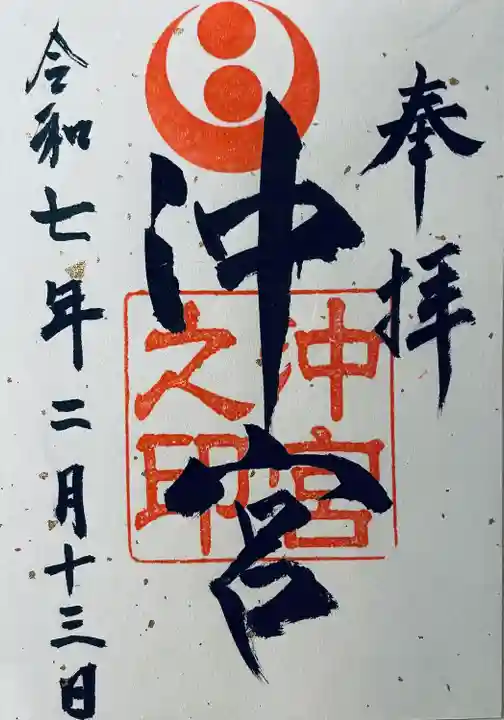 奉拝
沖宮
沖宮之印
令和七年二月十三日